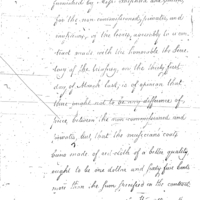 furnished by Messrs
for the non commissioned, privates, and
musicians, of the Corps, agreeably to a con-
tract made with the honorable the Secre-
tary of the Treasury, on the thirty first
day of March last, is of opinion that
there ought not to be any difference of
price between the non commissioned and
privates, but that the musicians coats
being made of red cloth of a better quality
ought to be one dollar and fifty five cents
more than the sum specified in the contract